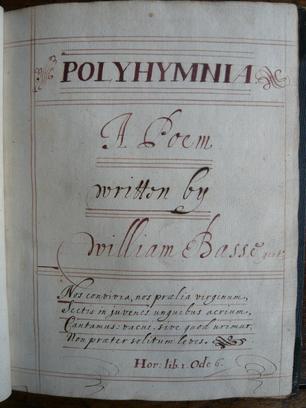 POLYHYMNIA
A Poem
written by
William Basse gent.
Nos convivia, nos prælia virginum,
Sectis in juvenes unguibus acrium,
Cantamus: vacui, sive quod urimur.
Non præter solitum leves.
Hor: lib: 1. Ode 6.